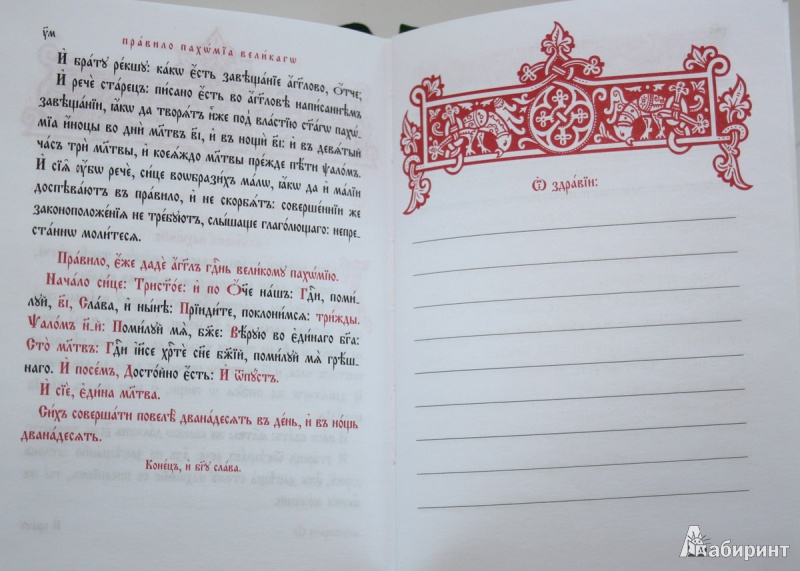 у҃м
пра́вило пахѡ́мїа вели́кагѡ
И҆ бра́ту ре́кшу: ка́кѡ є҆́сть завѣща́нїе а҆́гг҃лово, ѻ҆́тче;
И҆ речѐ ста́рецъ: пи́сано є҆́сть во а҆́гг҃ловѣ написа́ннѣмъ
завѣща́нїи, ꙗ҆́кѡ да творѧ́тъ и҆̀же под̾ вла́стїю ст҃а́гѡ пахѡ́-
мїа и҆́ноцы во днѝ мл҃твъ в҃і, и҆ въ нощѝ в҃і: и҆ въ девѧ́тый
ча́съ трѝ мл҃твы, и҆ коеѧ́ждо мл҃твы пре́жде пѣ́ти ѱало́мъ.
И҆ сїѧ̑ ᲂу҆́бѡ речѐ, си́це вѡѡбрази́хъ ма́лѡ, ꙗ҆́кѡ да и҆ ма́лїи
доспѣва́ютъ в̾ пра́вило, и҆ не скорбѧ́тъ: соверше́ннїи же
законоположе́нїѧ не тре́буютъ, слы́шаще глаго́лющаго: непре-
ста́ннѡ моли́тесѧ.
Пра́вило, є҆́же дадѐ а҆́гг҃лъ гд҇нь вели́кому пахѡ́мїю.
Нача́ло си́це: Трист҃о́е: и҆ по Ѻ҆́ч҃е на́шъ: Гд҇и, поми́-
луй, в҃і, Сла́ва, и҆ ны́нѣ: Прїиди́те, поклони́мсѧ: три́жды.
Ѱало́мъ н҃-й: Поми́луй мѧ̀, бж҃е: Вѣ́рую во є҆ди́наго бг҃а:
Сто̀ мл҃твъ: Гд҇и і҆и҃се хр҇тѐ сн҃е бж҃їй, поми́луй мѧ̀ грѣ́ш-
наго. И҆ посе́мъ, Досто́йно є҆́сть: И҆ ѿпу́стъ.
И҆ сїѐ, є҆ди́на мл҃тва.
Си́хъ соверша́ти повелѣ̀ двана́десѧть въ де́нь, и҆ въ но́щь
двана́десѧть.
Коне́цъ, и҆ бг҃у сла́ва.
Ѽ здра́вїи:
Лабиринт